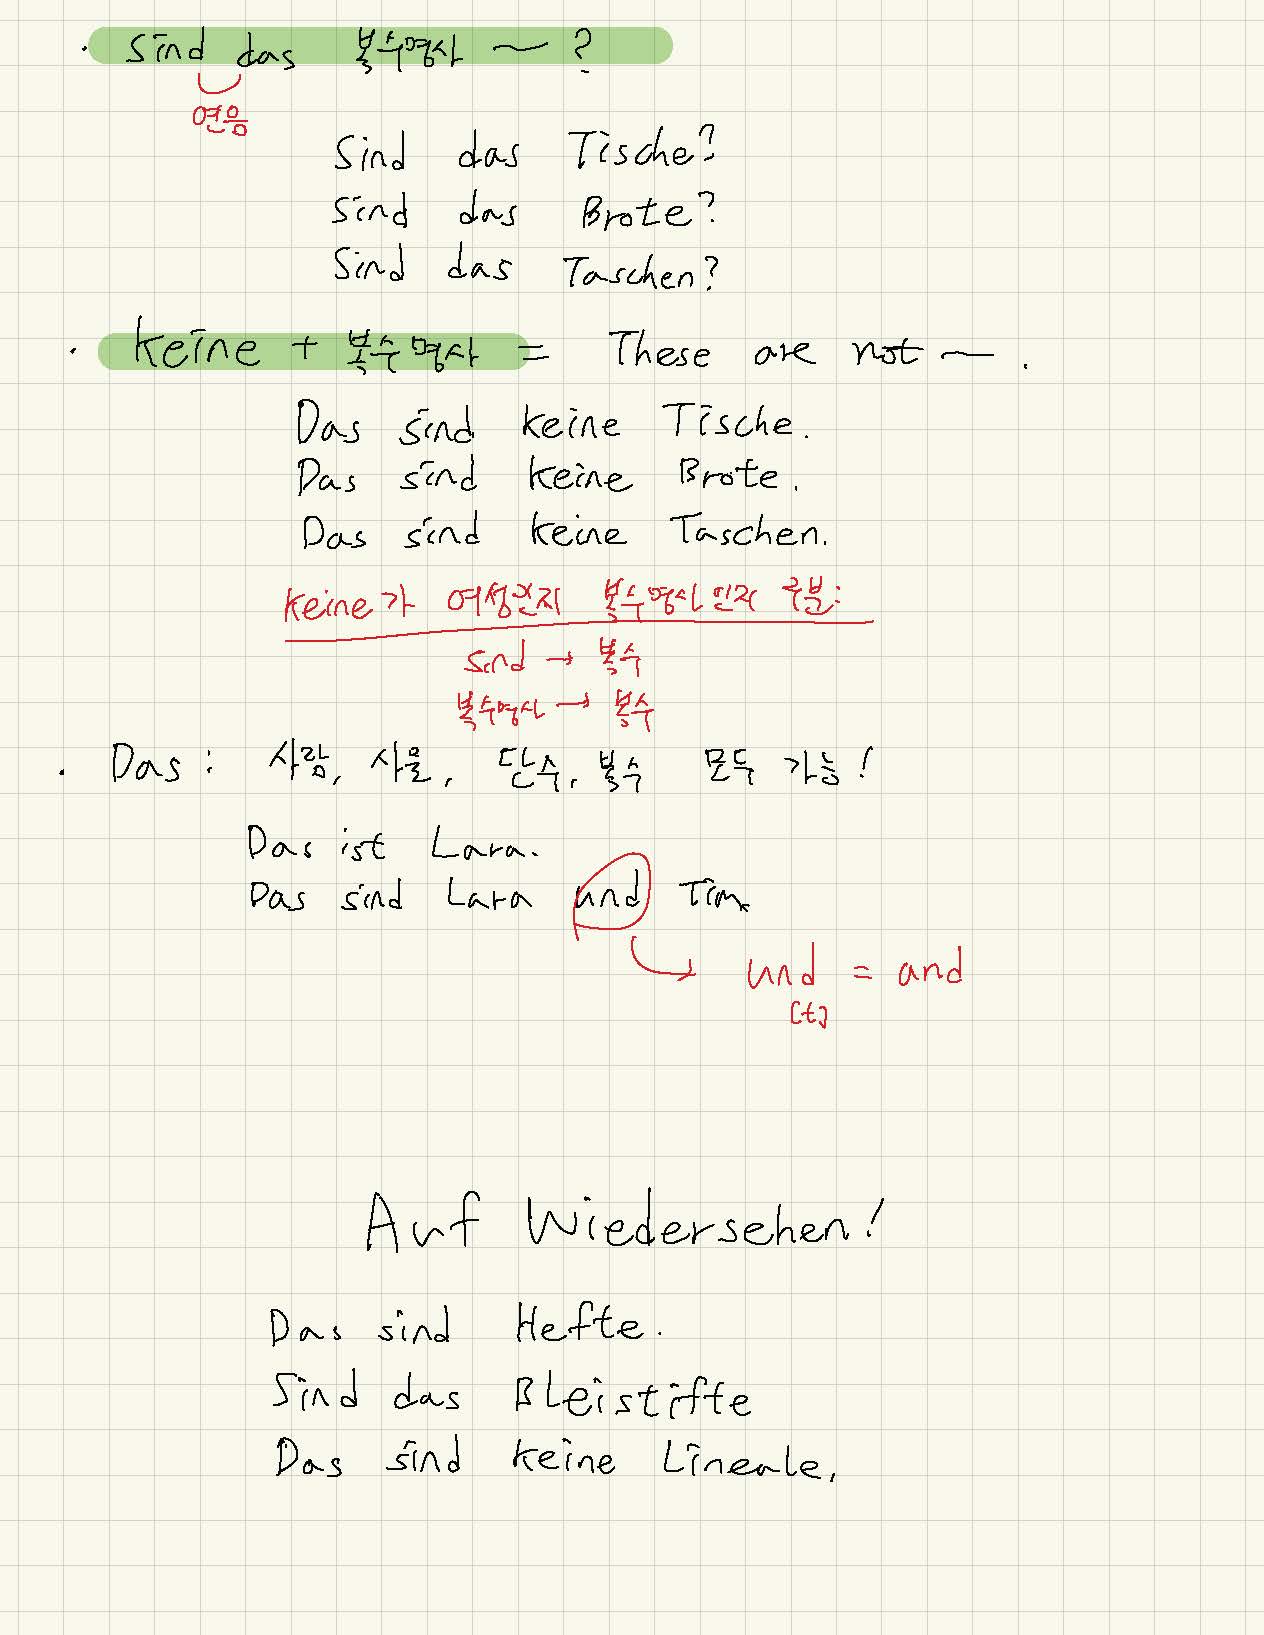 · Sind das 복수명사 ~ ?
연음
Sind das Tische?
Sind das Brote?
Sind das Taschen?
· keine + 복수명사 = These are not ~ .
Das sind keine Tische.
Das sind keine Brote.
Das sind keine Taschen.
keine가 여성인지 복수명사인지 구분:
sind → 복수
복수명사 → 복수
· Das : 사람, 사물, 단수, 복수 모두 가능!
Das ist Lara.
Das sind Lara und Tim.
→ und = and
[t]
Auf Wiedersehen!
Das sind Hefte.
Sind das Bleistifte
Das sind keine Lineale.